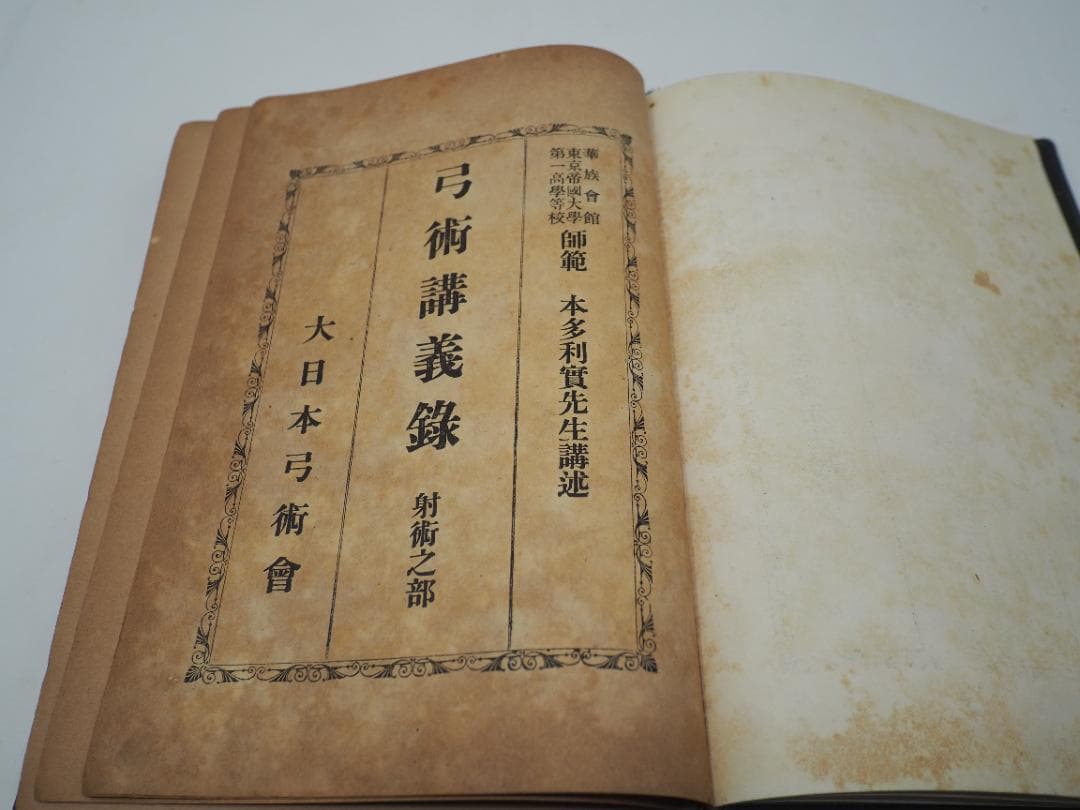 華族會館
東京帝國大學
第一高等學校
師範 本多利實先生講述
弓術講義錄 射術之部
大日本弓術會